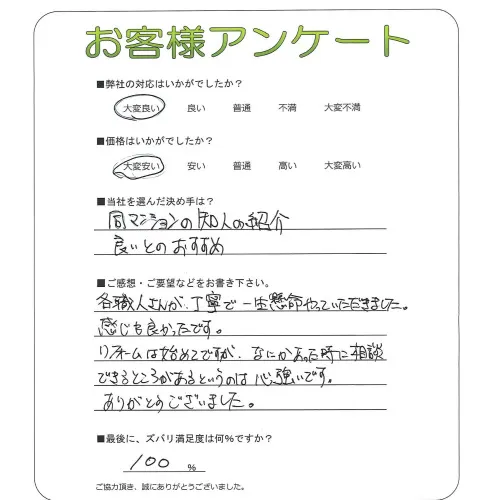 お客様アンケート
■弊社の対応はいかがでしたか?
大変良い 良い 普通 不満 大変不満
■価格はいかがでしたか?
大変安い 安い 普通 高い 大変高い
■当社を選んだ決め手は?
同マンションの知人の紹介
良いとのおすすめ
■ご感想・ご要望などをお書き下さい。
各職人さんが、丁寧で一生懸命やっていただきました。
感じも良かったです。
リフォームは始めてですが、なにかあった時に相談
できるところがあるというのは心強いです。
ありがとうございました。
■最後に、ズバリ満足度は何%ですか?
100 %
ご協力頂き、誠にありがとうございました。